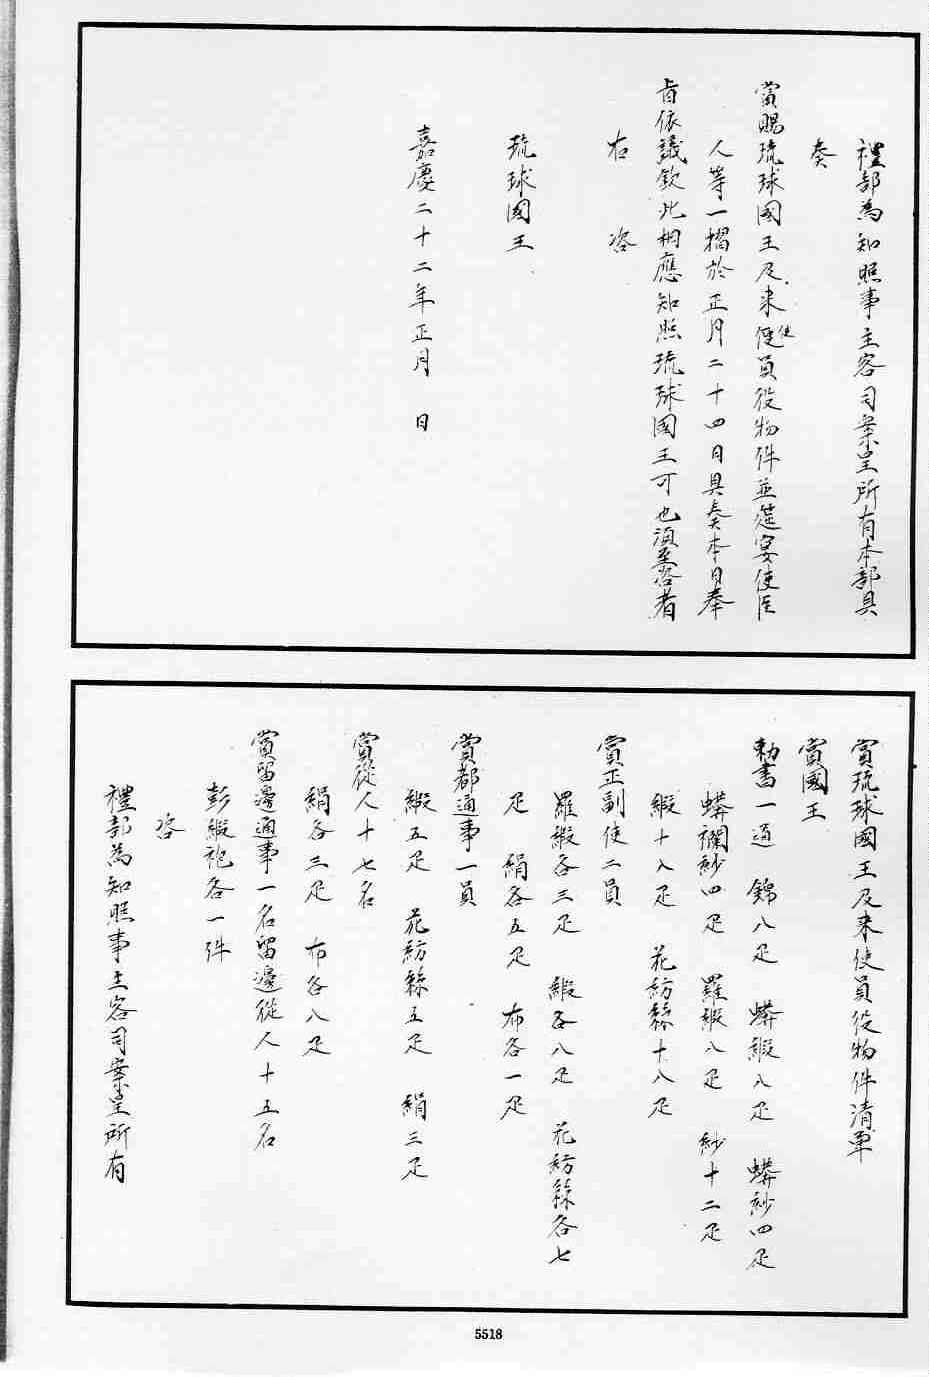 禮部為知照事主客司案呈所有本部具
奏
賞賜琉球國王及来使員役物件並筵宴使臣
人等一摺於正月二十四日具奏本日奉
旨依議欽此相應知照琉球國王可也須至咨者
右　咨
琉球國王
嘉慶二十二年正月　日
賞琉球國王及来使員役物件清單
賞國王
勅書一道　錦八疋　蟒緞八疋　蟒紗四疋
蟒襴紗四疋　羅緞八疋　紗十二疋
緞十八疋　花紡絲十八疋
賞正副使二員
羅緞各三疋　緞各八疋　花紡絲各七
疋　絹各五疋　布各一疋
賞都通事一員
緞五疋　花紡絲五疋　絹三疋
賞從人十七名
絹各三疋　布各八疋
賞留邊通事一名留邊從人十五名
彭緞袍各一件
咨
禮部為知照事主客司案呈所有
5518